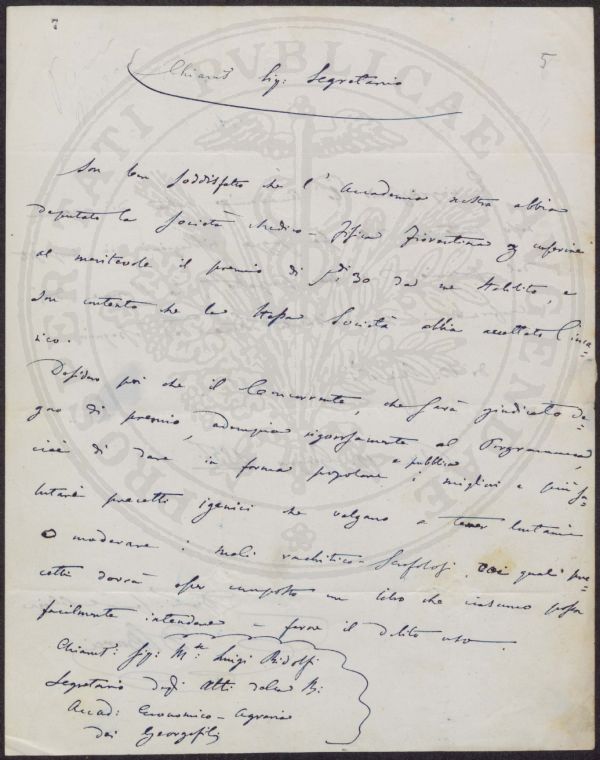 7
5
Chiarmo Sig: Segretario
Son ben soddisfatto che l'Accademia nostra abbia
deputato la Società Medico-Fisica Fiorentina a conferire
al meritevole il premio di 30 da me stabilito, e
son contento che la stessa Società abbia accettato l'inca-
rico.
Desidero poi che il Concorrente, che sarà giudicato de-
gno di premio, adempia rigorosamente al Programma,
cioè di dare in forma popolare e pubblica i migliori e più sa-
lutari precetti igenici che valgano a tener lontani
o moderare i mali rachitico-scrofolosi, coi quali pre-
cetti dovrà esser composto un libro che ciascuno possa
facilmente intendere - farne il debito uso.
Chiarmo Sig: Mse: Luigi Ridolfi
Segretario degli Atti della R:
Accad: Economico-Agraria
dei Georgofili
PROSPERITATI PUBLICAE AUGENDAE